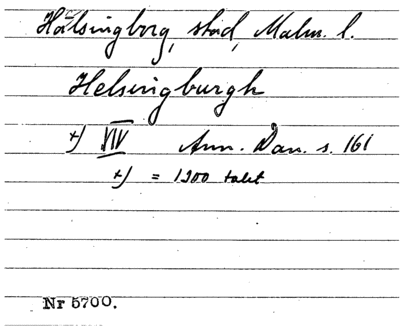 Hälsingborg, stad, Malm. l.
Helsingburgh
+) XIV Ann. Dan. s. 161
+) = 1300 talet
Nr 5700.